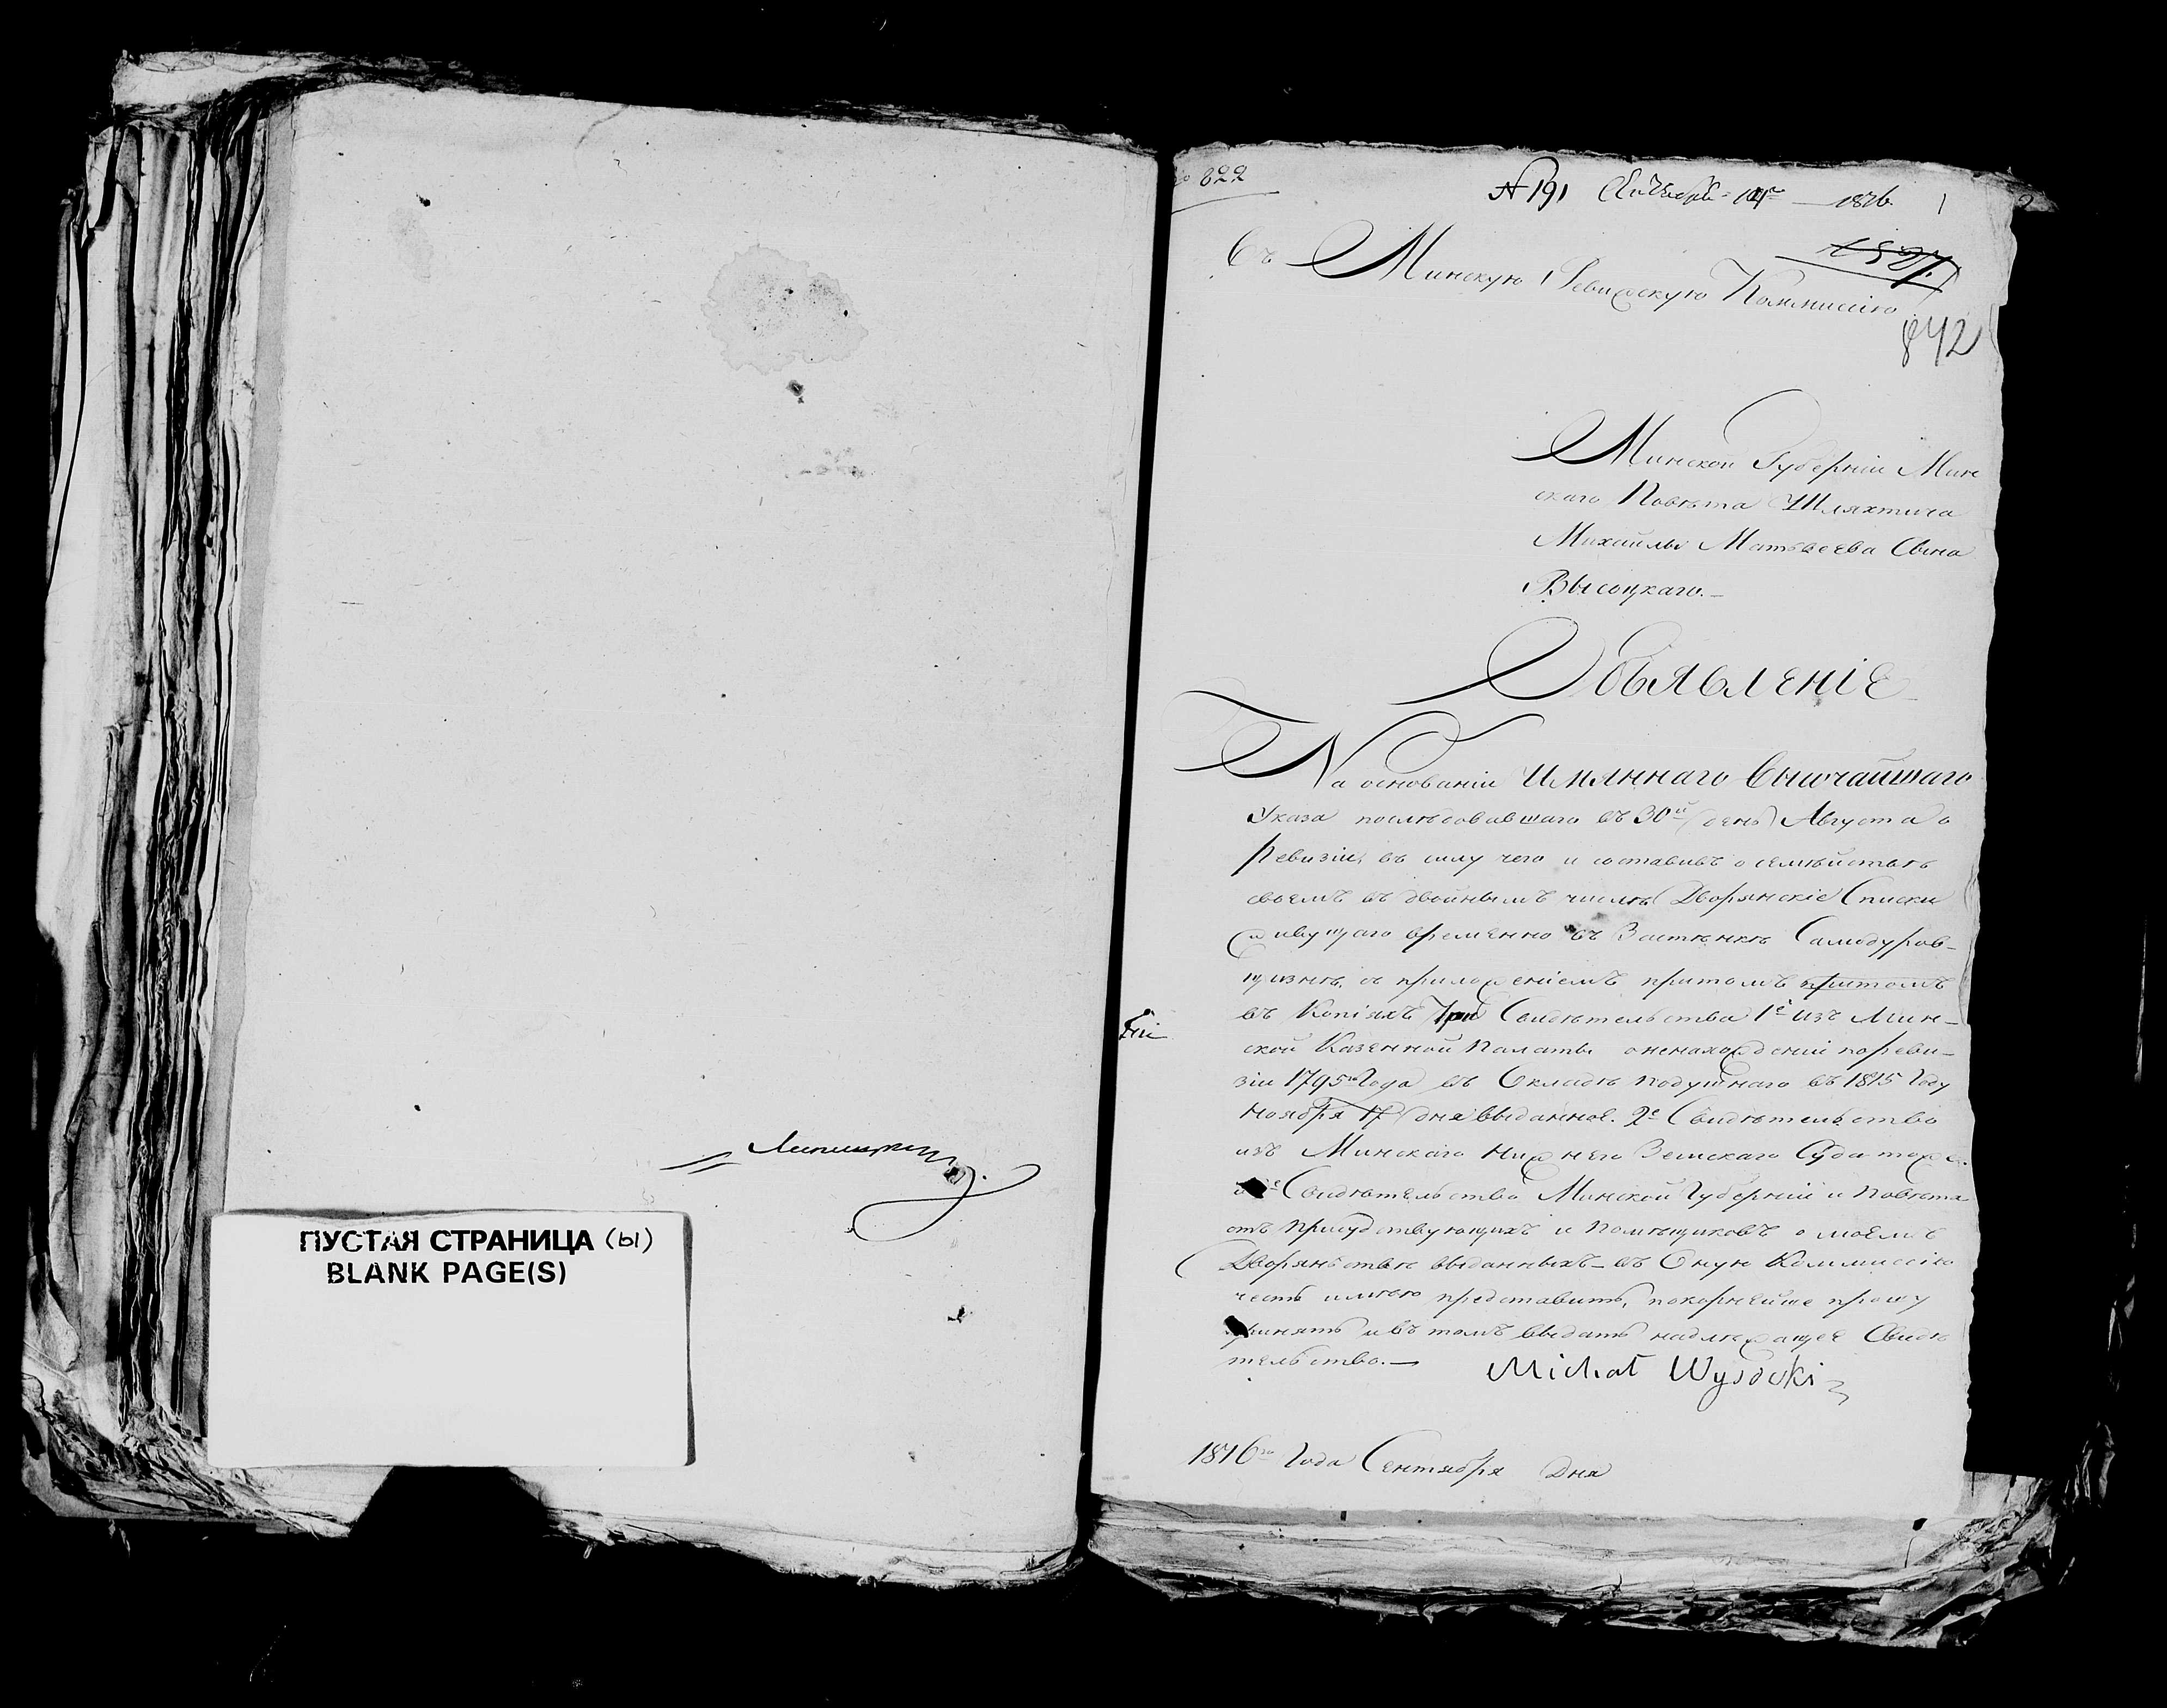 ПУСТАЯ СТРАНИЦА (ы)
BLANK PAGE(S)
822
№ 191 Сентября 14го 1816 1
Въ Минскую Ревижскую Коммиссію
842
Минской Губерніи Мин
скаго Повѣта Шляхтича
Михайлы Матвѣева Сына
Высоцкаго.—
Объявленіе
На основаніи Имяннаго Высочайшаго
Указа послѣдовавшаго въ 30й день Августа о
Ревизіи, въ силу чего и составивъ о семѣйствѣ
своемъ въ двойнымъ числѣ Дворянскіе Списки
живущаго временно въ Застѣнкѣ Самодуров-
щизнѣ, съ приложеніемъ притомъ притомъ
въ Копіяхъ Три Свидѣтельства 1е изъ Мин-
ской Казенной Палаты оненахожденій пореви-
зіи 1795го Года въ Окладѣ подушнаго въ 1815 Году
Ноября 17 дня выданное. 2е Свидѣтельство
изъ Минскаго Нижнего Земскаго Суда тоже.
Свидѣтельство Минской Губерніи и Повѣта
отъ Присудствующихъ и Помѣщиковъ о моемъ
Дворянствѣ выданныхъ— въ Оную Коммиссію
честь имѣю представить, покорнѣйше прошу
принять ивъ томъ выдать надлежащее Свидѣ
тельство.—
Michał Wysocki
1816го Года Сентября Дня